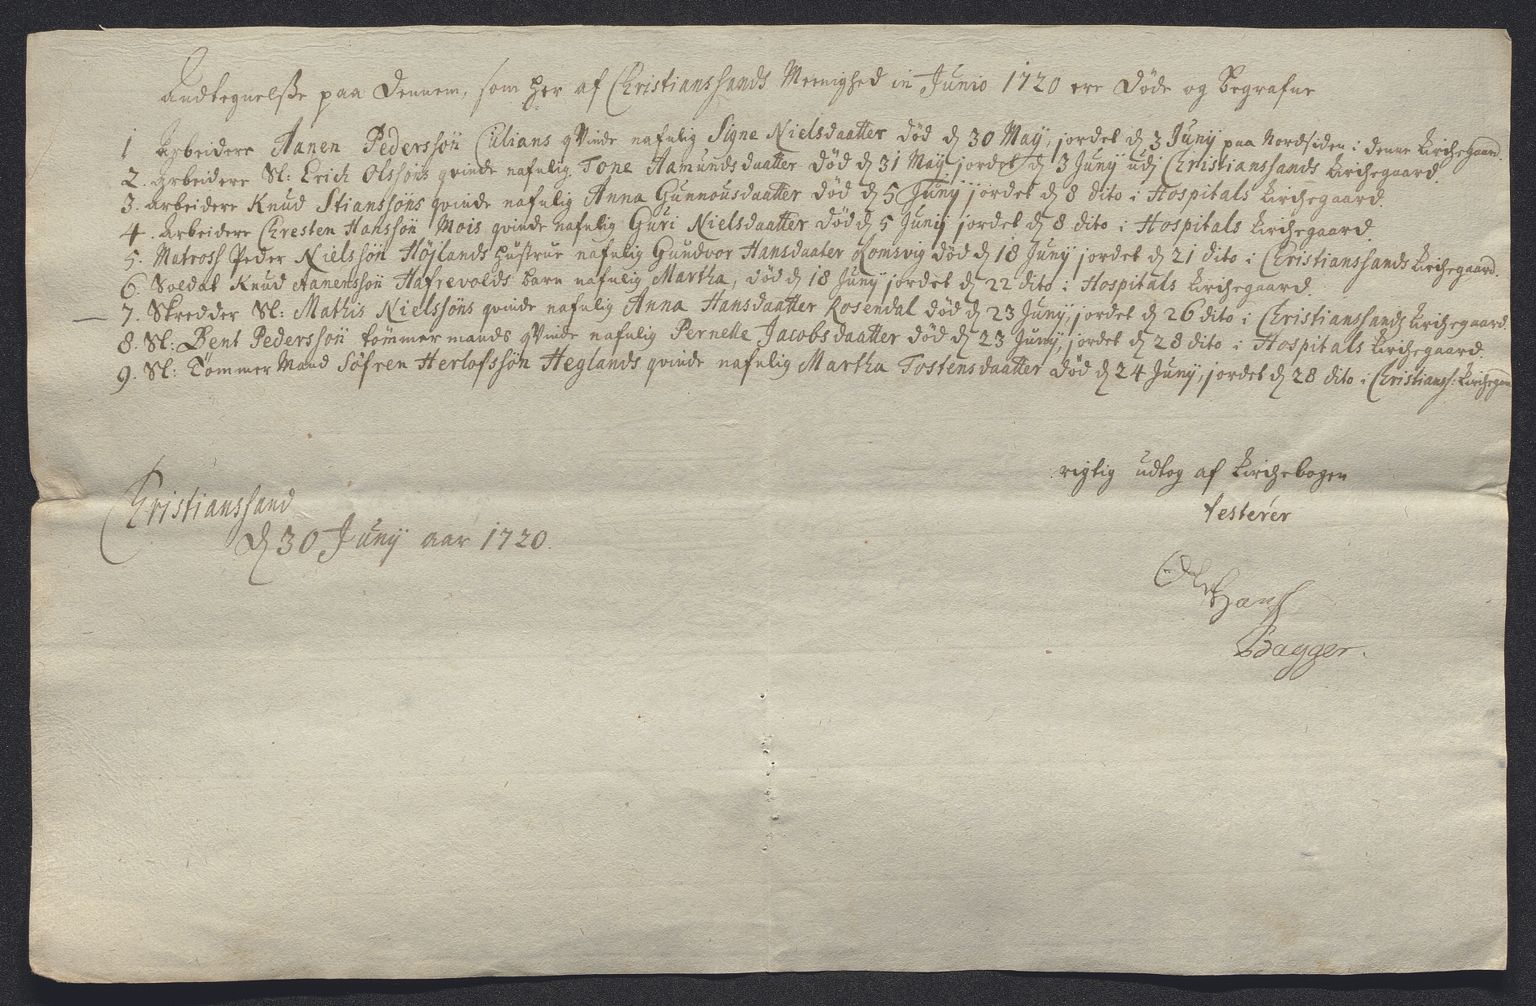 Andtegnelsse paa Dennem, som her af Christianssands Meenighed in Junio 1720 ere Døde og begrafne
1 Arbeidere Aanen Pederssøn qvinde nafnlig Signe Nielsdaatter død d 30 Maij, jordet d 3 Junij paa Nordsiden i denne Kirchegaard.
2. Arbeidere Sl: Erich Olssøns qvinde nafnlig Tone Aamundsdaatter død d 31 Maij jordet d 3 Junij udj Christianssands Kirchegaard.
3. Arbeidere Knud Stianssøns qvinde nafnlig Anna Gunnousdaatter død d 5 Junij jordet d 8 dito i Hospitals Kirchegaard.
4. Arbeidere Chresten Hanssøn Mois qvinde nafnlig Guri Nielsdaatter død d 5 Junij jordet d 8 dito i Hospitals Kirchegaard.
5. Matross Peder Nielssøn Højlands hustrue nafnlig Gundvor Hansdaater Romsvig død d 18 Junij jordet d 21 dito i Christianssands Kirchegaard.
6. Soldat Knud Aanenssøn Hafrevolds barn nafnlig Martha, død d 18 Junij jordet d 22 dito i Hospitals Kirchegaard.
7. Skredder Sl: Mathis Nielssøns qvinde nafnlig Anna Hansdaatter Rosendal død d 23 Junij, jordet d 26 dito i Christianssands Kirchegaard.
8. Sl: Bent Pederssøn tømmermands qvinde nafnlig Pernelle Jacobsdaatter død d 23 Junij, jordet d 28 dito i Hospitals Kirchegaard.
9. Sl: Tømmer Mand Søfren Herlofssøn Heglands qvinde nafnlig Martha Tostensdaatter død d 24 Junij, jordet d 28 dito i Christianss: Kirchegaar
rigtig udtog af Kirchebogen
testerer
Christianssand
d 30 Junij aar 1720.
Hanss
Bagger.